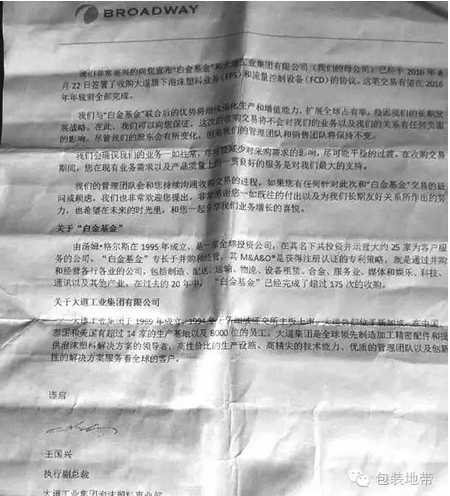 BROADWAY
我们非常高兴的向您宣布"白金基金"和大道工业集团有限公司(我们的母公司)已经于 2016 年 8
月 22 日签署了收购大道旗下泡沫塑料业务(FPS)和流量控制设备(FCD)的协议。这笔交易有望在 2016
年年底前全部完成。
我们与"白金基金"联合后的优势将继续强化生产和增值能力,扩展全球占有率,稳固我们的长期发
展战略。在此,我们可以向您保证,这次的收购交易将不会对我们的业务以及我们的关系有任何负面
的影响。尽管我们的股东会有所变化,但是我们的管理团队和销售团队将保持不变。
我们会确保我们的业务一如往常,尽可能减少对采购需求的影响,尽可能平稳的过渡。在收购交易
期间,您在现有业务需求以及产品质量上的一贯良好的服务是对我们最大的支持。
我们的管理团队会和您持续沟通收购交易的进程,如果您有任何针对此次和"白金基金"交易的疑
问或顾虑,我们也非常欢迎您提出。非常感谢您一如既往的付出以及为我们长期友好关系所作出的努
力,也希望在未来的时光里,和您一起分享我们业务增长的喜悦。
关于"白金基金"
由汤姆·格尔斯在 1995 年成立,是一家全球投资公司,在其名下共投资并运营大约 25 家为客户服
务的公司。"白金基金"专长于并购和经营,其 M&A&O®是获得注册认证的专利策略,就是通过并购
和经营各行各业的公司,包括制造、配送、运输、物流、设备租赁、合金、服务业、媒体和娱乐、科技、
通讯以及其他产业。在过去的 20 年中,"白金基金"已经完成了超过 175 次的收购。
关于大道工业集团有限公司
大道工业集团于 1969 年成立,1994年于新加坡证交所主板上市,大道总部位于新加坡。在中国
泰国和美国有超过 14 家的生产基地以及 8000 位的员工。大道集团是全球领先制造加工精密配件和提
供泡沫塑料解决方案的领导者,高性价比的生产设施、高精尖的技术能力、优质的管理团队以及创新
性的解决方案服务着全球的客户。
谨启
王国兴
执行副总裁
大道工业集团泡沫塑料事业部
包装地带